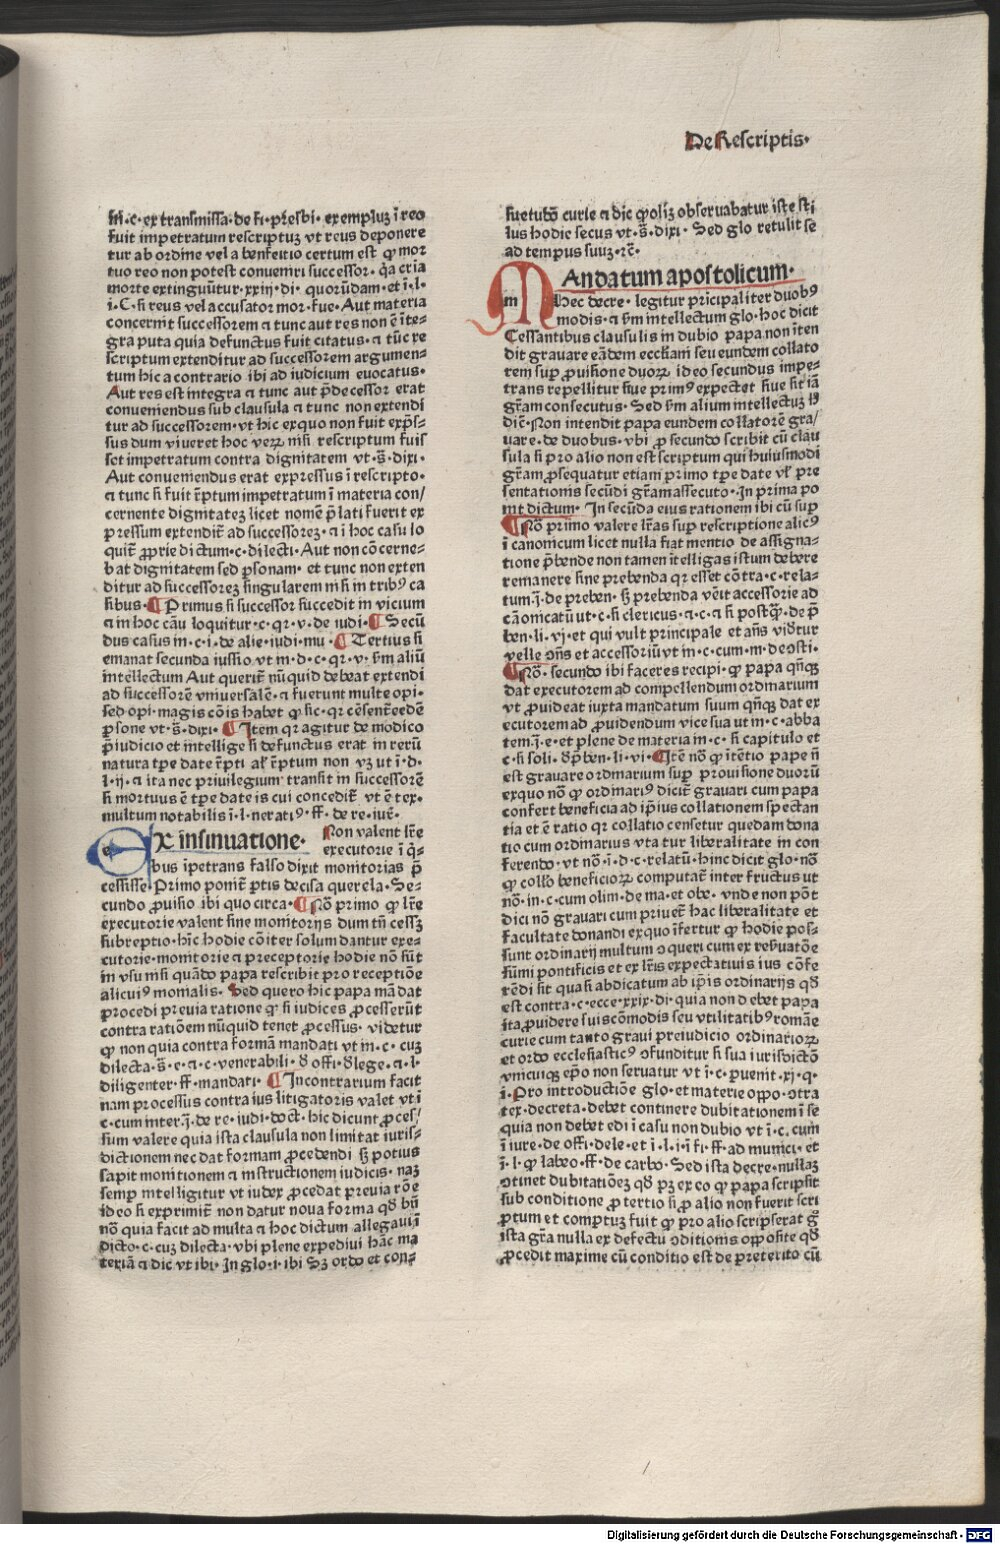 De Rescriptis·
in·c·ex transmissa·de fi·presbi·exempluꝫ ī reo
fuit impetratum rescriptuꝫ vt reus deponere
tur ab ordine vel a benficio certum est ꝙ mor
tuo reo non potest conueniri successor·q̄a cria
morte extinguūtur·xxiij·di·quorūdam·et ī·l·
i·C·si reus vel accusator mor·fue·Aut materia
concernit successorem ⁊ tunc aut res non ē īte⸗
gra puta quia defunctus fuit citatus·⁊ tūc re
scriptum extenditur ad successorem argumen⸗
tum hic a contrario ibi ad iudicium euocatus·
Aut res est integra ⁊ tunc aut p̄decessor erat
conueniendus sub clausula ⁊ tunc non extendi
tur ad successorem·vt hic exquo non fuit exp̄s⸗
sus dum viueret hoc verꝝ nisi rescriptum fuis
set impetratum contra dignitatem vt·s̄·dixi·
Aut conueniendus erat expressus ī rescripto·
⁊ tunc si fuit r̄ptum impetratum ī materia con/
cernente dignitateꝫ licet nomē p̄lati fuerit ex
pressum extendit̄ ad successoreꝫ·⁊ i hoc casu lo
quit̄ ꝓprie dictum·c·dilecti·Aut non cōcerne⸗
bat dignitatem sed ꝑsonam·et tunc non exten
ditur ad successoreꝫ singularem nisi in tribꝰ ca
sibus·¶ Primus si successor succedit in vicium
⁊ in hoc cāu loquitur·c·qr·v·de iudi·¶ Secū
dus casus in·c·i·de alie·iudi·mu·¶ Tertius si
emanat secunda iussio vt in·d·c·qr·v·s̄m aliū
intellectum Aut querit̄ nūquid debeat extendi
ad successorē vniuersalē·⁊ fuerunt multe opi·
sed opi·magis cōis habet ꝙ sic·qr cēsent̄ eedē
ꝑsone vt·s̄·dixi·¶ Item qr agitur de modico
p̄iudicio et intellige si defunctus erat in rerū
natura tpe date r̄pti al̄ r̄ptum non vꝫ ut ī·d·
l·ij·⁊ ita nec priuilegium transit in successorē
si mortuus ē tpe date is cui concedit̄ vt ē tex·
multum notabilis ī·l·neratiꝰ·ff·de re·iur̄·
Ex insinuatione· Non valent lr̄e
executorie ī q̄⸗
bus īpetrans falso dixit monitorias p̄
cessisse·Primo ponit̄ ptis decisa querela·Se⸗
cundo ꝓuisio ibi quo circa·¶ Nō primo ꝙ lr̄e
executorie valent sine monitorijs dum tn̄ cessꝫ
subreptio·hic hodie cōiter solum dantur exe⸗
cutorie·monitorie ⁊ preceptorie hodie nō sūt
in vsu nisi quādo papa rescribit pro receptiōe
alicuiꝰ monialis·Sed quero hic papa mādat
procedi previa ratione ꝙ si iudices ꝓcesserūt
contra ratiōem nūquid tenet ꝓcessus·videtur
ꝙ non quia contra formā mandati vt in·c·cuꝫ
dilecta·s̄·e·⁊·c·venerabili·ꝺ offi·ꝺlege·⁊·l·
diligenter·ff·mandati·¶ Incontrarium facit
nam processus contra ius litigatoris valet vt ī
c·cum inter·j̄·de re·iudi·doct·hic dicunt ꝓces/
sum valere quia ista clausula non limitat iuris⸗
dictionem nec dat formam ꝓcedendi sꝫ potius
sapit monitionem ⁊ instructionem iudicis·naꝫ
semꝑ intelligitur vt iudex ꝓcedat previa rōe
ideo si exprimit̄ non datur noua forma qꝺ bn̄
nō quia facit ad multa ⁊ hoc dictum allegaui ī
dicto·c·cuꝫ dilecta·vbi plene expedivi hāc ma
teriā ⁊ dic vt ibi·In glo·i·ibi Sꝫ ordo et con⸗
suetudō curie ⁊ dic ꝙ oliꝫ obseruabatur iste sti
lus hodie secus vt·s̄·dixi·Sed glo retulit se
ad tempus suuꝫ·rc̄·
MAndatum apostolicum·
Hec decre·legitur prīcipaliter duobꝰ
modis·⁊ s̄m intellectum glo·hoc dicit
Cessantibus clausulis in dubio papa non īten
dit grauare eādem eccl̄iam seu eundem collato
rem suꝑ ꝓuisione duoꝝ ideo secundus impe⸗
trans repellitur siue primꝰ expectet siue sit iā
gr̄am consecutus·Sed s̄m alium intellectuꝫ ꝉꝰ
dic̄·Non intendit papa eundem collatorē gra/
uare·de duobus·vbi ꝓ secundo scribit cū clau
sula si pro alio non est scriptum qui huiusmodi
gr̄am ꝓsequatur etiam primo tpe date vꝉ pre
sentationis secūdi gr̄am assecuto·In prima po
nit dictum·In secūda eius rationem ibi cū suꝑ
¶ Nō primo valere lr̄as suꝑ rescriptione alicꝰ
ī canonicum licet nulla fiat mentio de assigna⸗
tione p̄bende non tamen ītelligas istum debere
remanere sine prebenda qr esset cōtra·c·rela⸗
tum·j̄·de preben·sꝫ prebenda vēit accessorie ad
cāonicatū ut·c·si clericus·⁊·c·⁊ si postꝙ̄·de p̄
ben·li·vj·et qui vult principale et an̄s vidr̄tur
velle ꝯn̄s et accessoriū vt in·c·cum·m·de ꝯsti·
¶ Nō·secundo ibi faceres recipi·ꝙ papa qn̄qꝫ
dat executorem ad compellendum ordinarium
vt ꝓuideat iuxta mandatum suum qn̄qꝫ dat ex
ecutorem ad ꝓuidendum vice sua ut in·c·abba
tem·j̄·e·et plene de materia in·c·si capitulo et
c·si soli·ꝺ p̄ben·li·vi·¶ Itē nō ꝙ ītētio pape n̄
est grauare ordinarium suꝑ provisione duorū
exquo nō ꝙ ordinariꝰ dicit̄ grauari cum papa
confert beneficia ad ip̄ius collationem spectan
tia et ē ratio qr collatio censetur quedam dona
tio cum ordinarius vta tur liberalitate in con
ferendo·vt nō·ī·d·c·relatū·hinc dicit glo·nō
ꝙ collo beneficioꝝ computat̄ inter fructus ut
nō·in·c·cum olim·de ma·et obe·vnde non pōt
dici nō grauari cum priuet̄ hac liberalitate et
facultate donandi exquo īfertur ꝙ hodie pos⸗
sunt ordinarij multum ꝯqueri cum ex resuatōe
sūmi pontificis et ex lr̄is expectatiuis ius cōfe
rēdi sit quasi abdicatum ab ip̄is ordinarijs qꝺ
est contra·c·ecce·xxix·di·quia non debet papa
ita ꝓuidere suis cōmodis seu vtilitatibꝰ romāe
curie cum tanto graui preiudicio ordinarioꝝ
et ordo ecclesiasticꝰ ꝯfunditur si sua iurisdictō
vnicuiqꝫ ep̄o non seruatur vt ī·c·puenit·xj·q·
i·Pro introductiōe glo·et materie oppo·ꝯtra
tex·decreta·debet continere dubitationem ī se
quia non debet edi ī casu non dubio vt ī·c·cum
ī iure·de offi·dele·et ī·l·i·ī fi·ff·ad munici·et
ī·l·ꝙ labeo·ff·de carbo·Sed ista decre·nullaꝫ
ꝯtinet dubitatiōeꝫ qꝺ pꝫ ex eo ꝙ papa scripsit
sub conditione ꝓ tertio si ꝓ alio non fuerit scri
ptum et comptuꝫ fuit ꝙ pro alio scripserat g̊
ista gr̄a nulla ex defectu ꝯditionis opposite qꝺ
ꝓcedit maxime cū conditio est de preterito cū
Digitalisierung gefördert durch die Deutsche Forschungsgemeinschaft · DFG